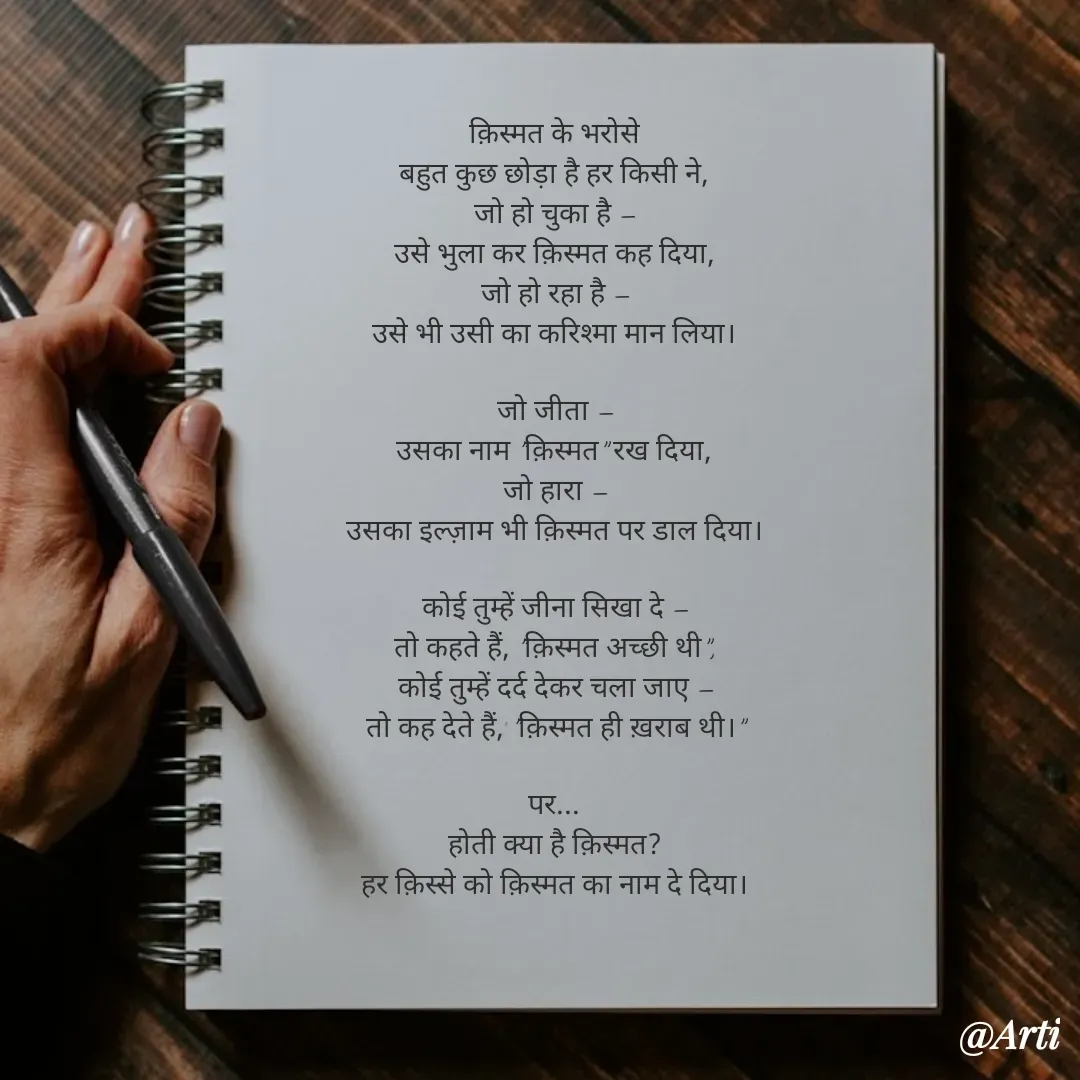 क़िस्मत के भरोसे
बहुत कुछ छोड़ा है हर किसी ने,
जो हो चुका है –
उसे भुला कर क़िस्मत कह दिया,
जो हो रहा है –
उसे भी उसी का करिश्मा मान लिया।
जो जीता –
उसका नाम "क़िस्मत" रख दिया,
जो हारा –
उसका इल्ज़ाम भी क़िस्मत पर डाल दिया।
कोई तुम्हें जीना सिखा दे –
तो कहते हैं, "क़िस्मत अच्छी थी",
कोई तुम्हें दर्द देकर चला जाए –
तो कह देते हैं, "क़िस्मत ही ख़राब थी।"
पर...
होती क्या है क़िस्मत?
हर क़िस्से को क़िस्मत का नाम दे दिया।
@Arti